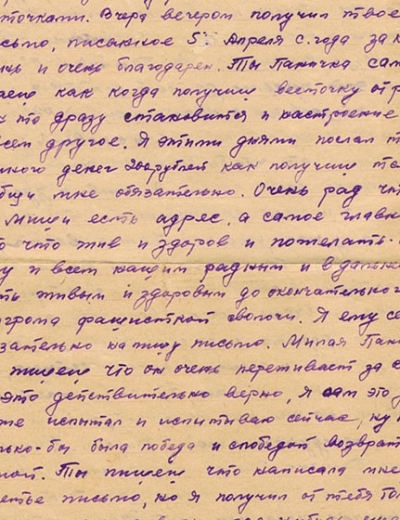 точками. Вчера вечером получил твое
сьмо, писанное 5 Апреля с.года за к
нь и очень благодарен. Ты Паничка сам
аеш как когда получиш весточку от р
к то дразу становится и настроение
всем другое. Я этими днями послал т
много денег 200 рублей как получиш те
общи мне обязательно. Очень рад чт
Миши есть адрес, а самое главн
о что жив и здоров и пожелать
у и всем нашим радным и вдальне
ть живым и здоровым до окончательного
згрома фашисткой сволочи. Я ему се
язательно напишу письмо. Милая Пан
пишеш что он очень переживает за с
это действительно верно, я сам это
же испытал и испитиваю сейчас, ну н
лько-бы была победа и спобедой возврат
мой. Ты пишеш что написала мне
етье письмо, но я получил от тебя тол